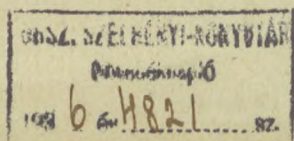 ORSZ. SZÉCHÉNYI-KÖNYVTÁR
Növedéknapló
6 év 4821 sz.